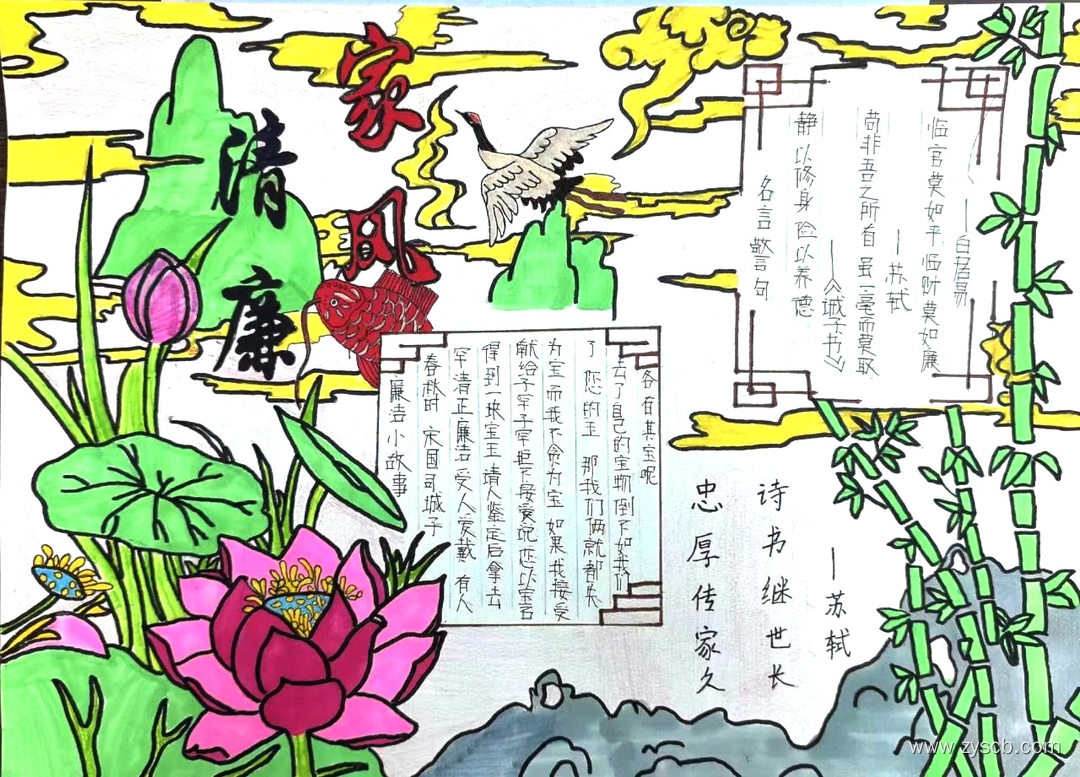 清廉
家风
名言警句
静以修身 险以养德
——《诫子书》
苟非吾之所有 虽一毫而莫取
——苏轼
临官莫如平 临财莫如廉
——白居易
廉洁小故事
春秋时 宋国司城子
罕清正廉洁 受人爱戴 有人
得到一块宝玉 请人鉴定后拿去
献给子罕 子罕拒不接受 说 您以宝石
为宝 而我不贪为宝 如果我接受
了 您的玉 那我们俩就都失
去了自己的宝物 倒不如我们
各有其宝呢
忠厚传家久
诗书继世长
——苏轼
www.zyscb.com